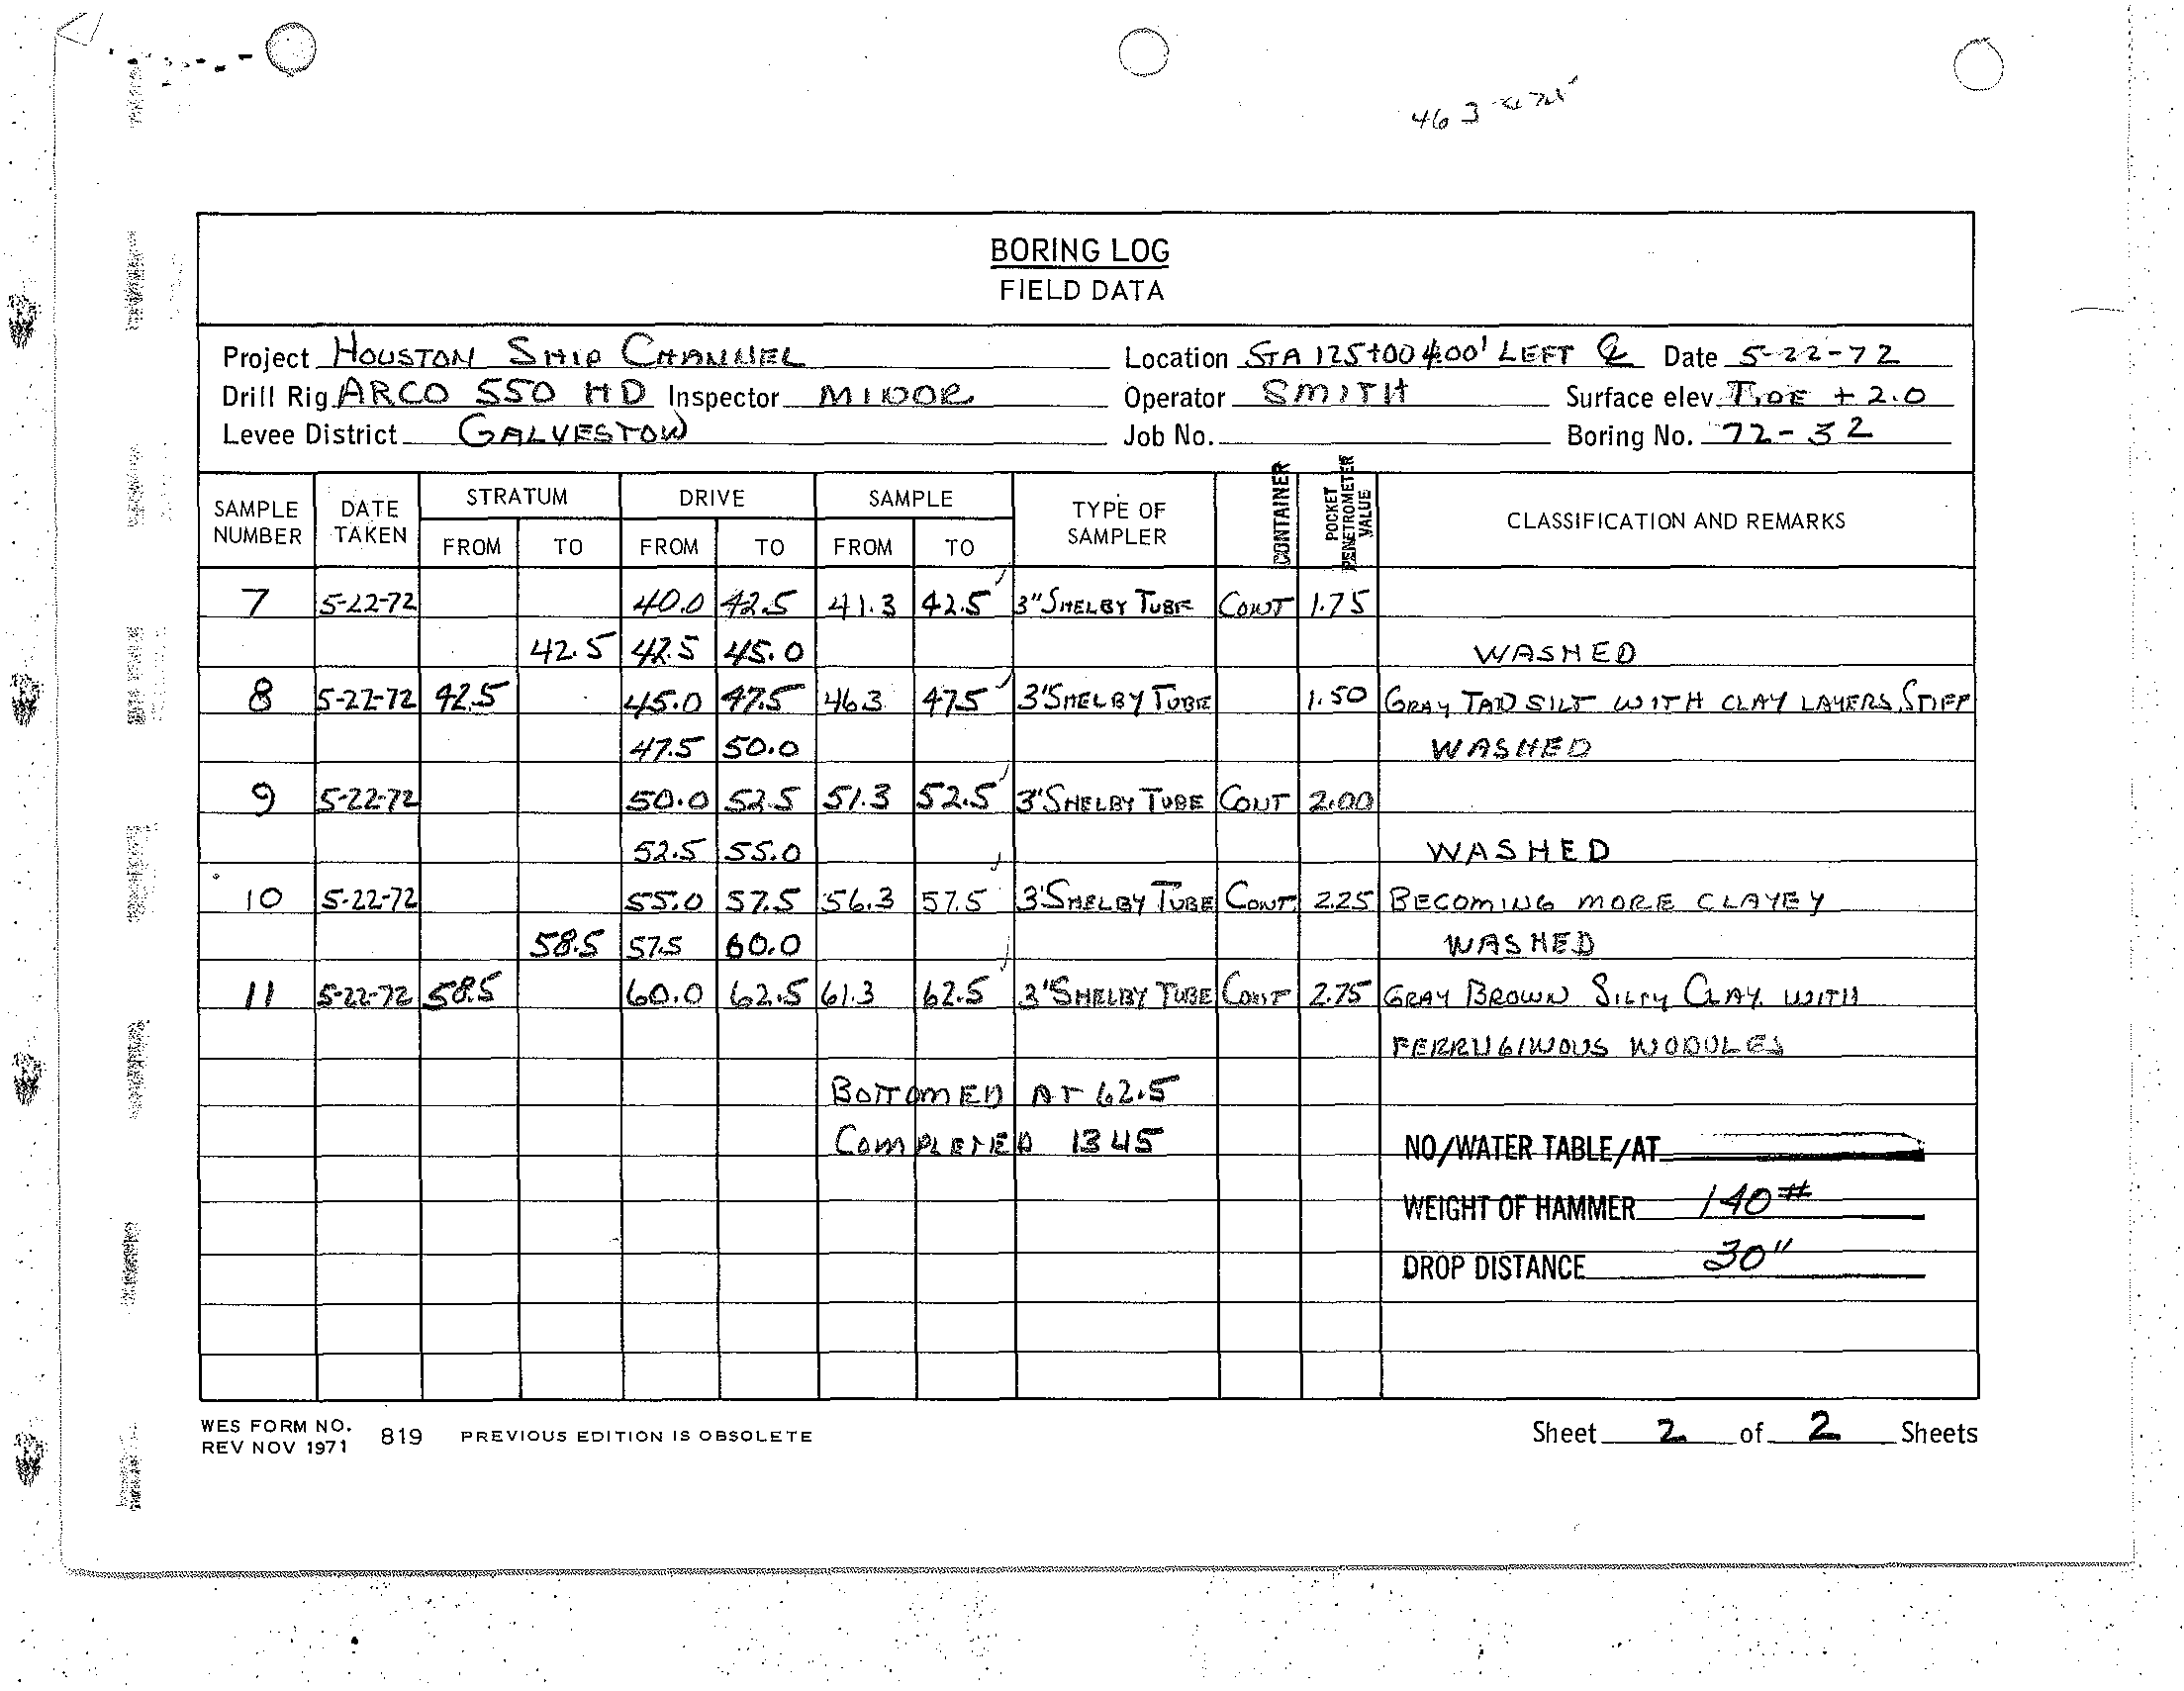 BORING LOG
FIELD DATA
Project HOUSTON SHIP CHANNEL Location STA 125+00 400' LEFT ℄ Date 5-22-72
Drill Rig ARCO 550 HD Inspector MINOR Operator SMITH Surface elev. TIDE +2.0
Levee District GALVESTON Job No. Boring No. 72-32
SAMPLE NUMBER DATE TAKEN STRATUM FROM TO DRIVE FROM TO SAMPLE FROM TO TYPE OF SAMPLER CONTAINER POCKET PENETROMETER VALUE CLASSIFICATION AND REMARKS
7 5-22-72 40.0 42.5 41.3 42.5 3" SHELBY TUBE CONT 1.75
42.5 42.5 45.0 WASHED
8 5-22-72 42.5 45.0 47.5 46.3 47.5 3" SHELBY TUBE 1.50 GRAY TAN SILT WITH CLAY LAYERS, STIFF
47.5 50.0 WASHED
9 5-22-72 50.0 52.5 51.3 52.5 3" SHELBY TUBE CONT 2.00
52.5 55.0 WASHED
10 5-22-72 55.0 57.5 56.3 57.5 3" SHELBY TUBE CONT 2.25 BECOMING MORE CLAYEY
58.5 57.5 60.0 WASHED
11 5-22-72 58.5 60.0 62.5 61.3 62.5 3" SHELBY TUBE CONT 2.75 GRAY BROWN SILTY CLAY WITH
FERRUGINOUS NODULES
BOTTOMED AT 62.5
COMPLETED 1345
NO/WATER TABLE/AT
WEIGHT OF HAMMER 140#
DROP DISTANCE 30"
WES FORM NO. 819 PREVIOUS EDITION IS OBSOLETE Sheet 2 of 2 Sheets
REV NOV 1971